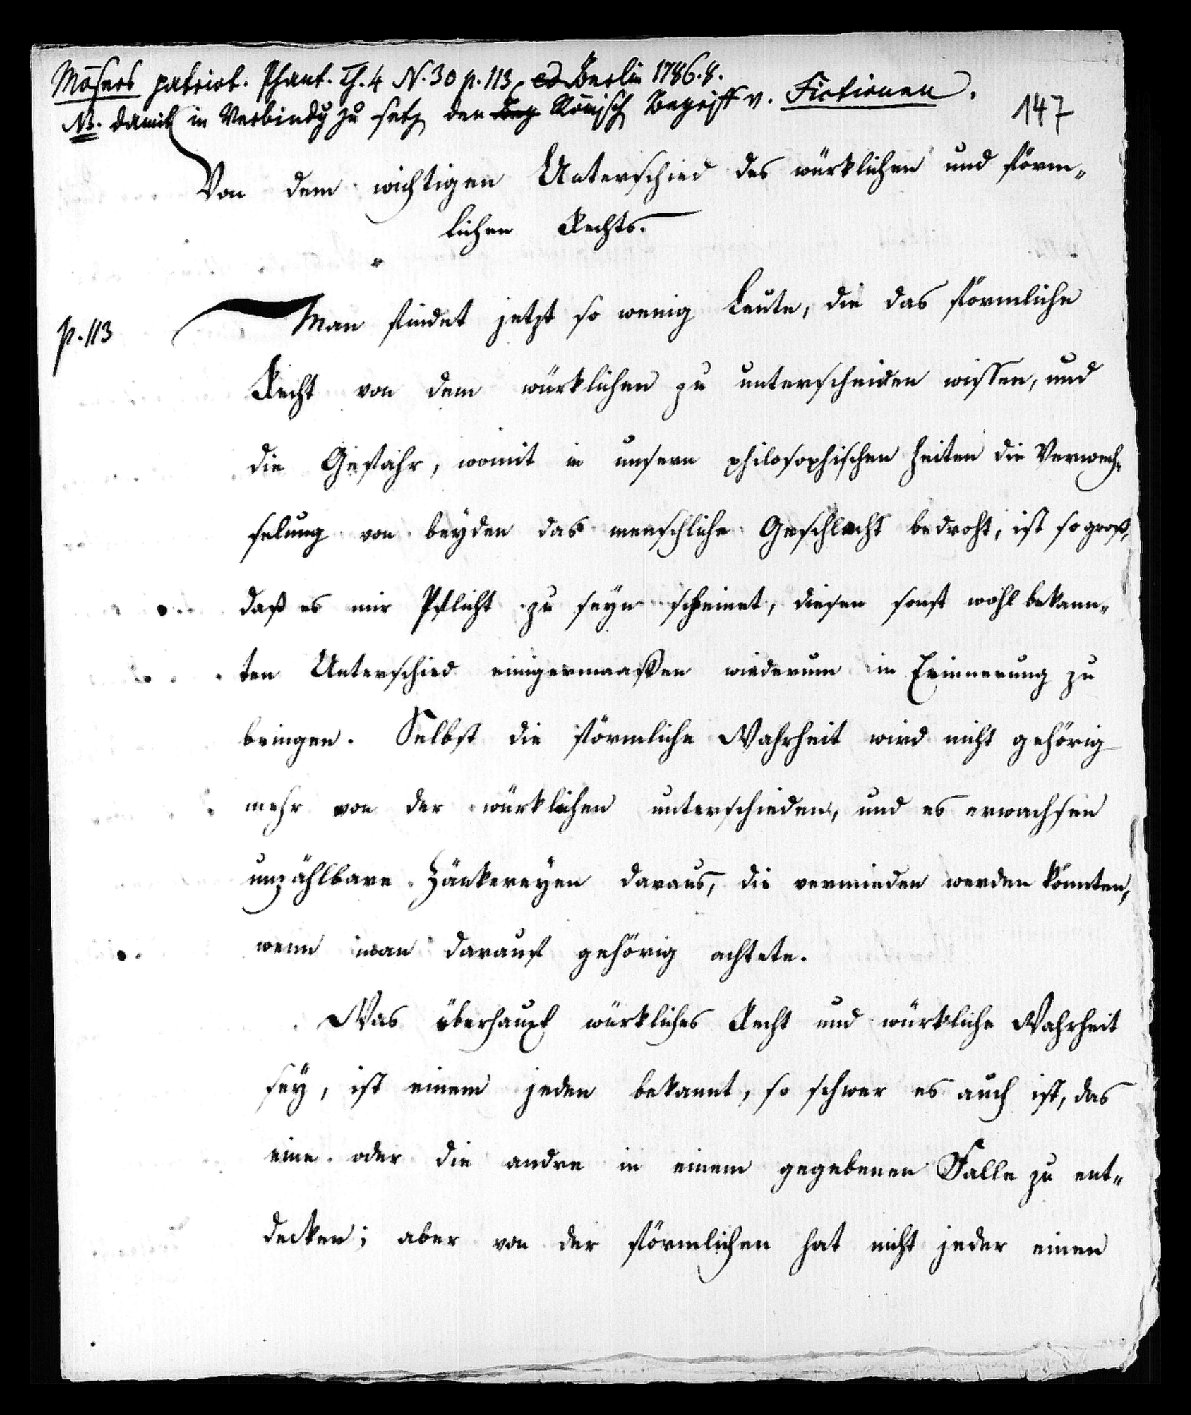 Mösers patriot. Phant. Th. 4 N. 30 p. 113, ed Berlin 1786. 8.
NB. damit in Verbindg zu setz den Beg Römisch Begriff v. Fictionen.
147
Von dem wichtigen Unterschied des würklichen und förm-
lichen Rechts.
p. 113
Man findet jetzt so wenig Leute, die das förmliche
Recht von dem würklichen zu unterscheiden wissen, und
die Gefahr, womit in unsern philosophischen Zeiten die Verwech-
selung von beyden das menschliche Geschlecht bedroht, ist so groß,
daß es mir Pflicht zu seyn scheinet, diesen sonst wohl bekann-
ten Unterschied einigermaaßen wiederum in Erinnerung zu
bringen. Selbst die förmliche Wahrheit wird nicht gehörig
mehr von der würklichen unterschieden, und es erwachsen
unzählbare Zänkereyen daraus, die vermieden werden könnten,
wenn man darauf gehörig achtete.
Was überhaupt würkliches Recht und würkliche Wahrheit
sey, ist einem jeden bekannt, so schwer es auch ist, das
eine oder die andre in einem gegebenen Falle zu ent-
decken; aber von der förmlichen hat nicht jeder einen